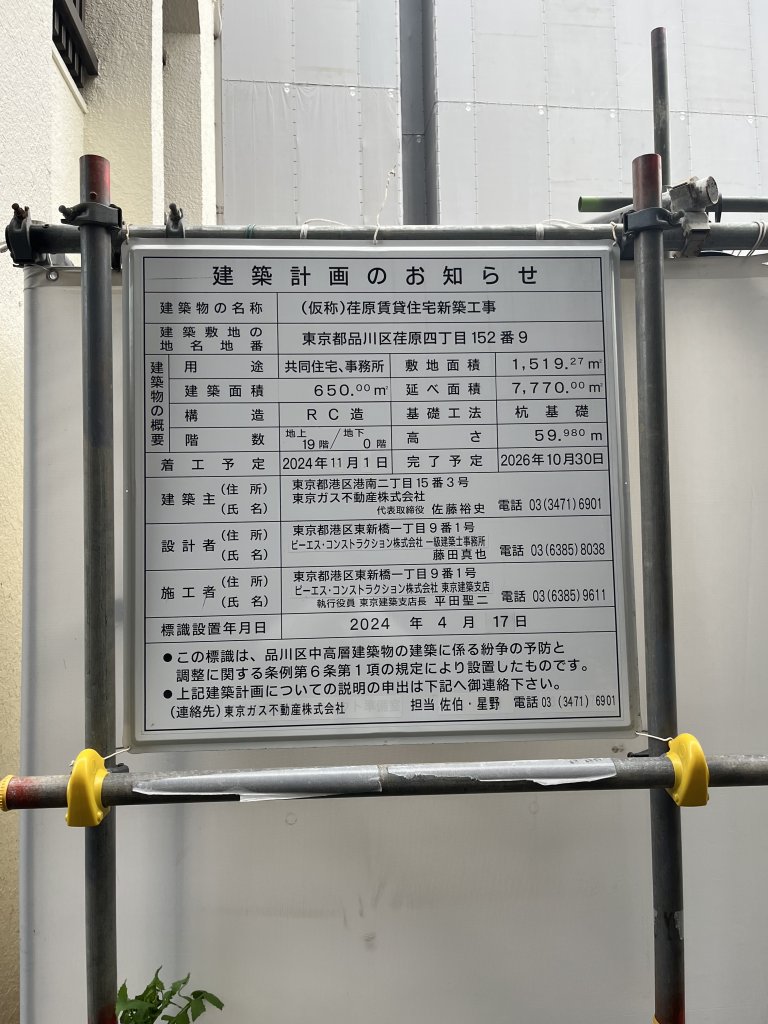 建築計画のお知らせ
建築物の名称 (仮称)荏原賃貸住宅新築工事
建築敷地の地名地番 東京都品川区荏原四丁目152番9
建築物の概要
用途 共同住宅、事務所 敷地面積 1,519.27㎡
建築面積 650.00㎡ 延べ面積 7,770.00㎡
構造 RC造 基礎工法 杭基礎
階数 地上19階/地下0階 高さ 59.980m
着工予定 2024年11月1日 完了予定 2026年10月30日
建築主 (住所) 東京都港区港南二丁目15番3号
(氏名) 東京ガス不動産株式会社
代表取締役 佐藤裕史 電話 03(3471)6901
設計者 (住所) 東京都港区東新橋一丁目9番1号
(氏名) ピーエス・コンストラクション株式会社 一級建築士事務所
藤田真也 電話 03(6385)8038
施工者 (住所) 東京都港区東新橋一丁目9番1号
(氏名) ピーエス・コンストラクション株式会社 東京建築支店
執行役員 東京建築支店長 平田聖二 電話 03(6385)9611
標識設置年月日 2024年4月17日
●この標識は、品川区中高層建築物の建築に係る紛争の予防と
調整に関する条例第6条第1項の規定により設置したものです。
●上記建築計画についての説明の申出は下記へ御連絡下さい。
(連絡先)東京ガス不動産株式会社 担当 佐伯・星野 電話03(3471)6901